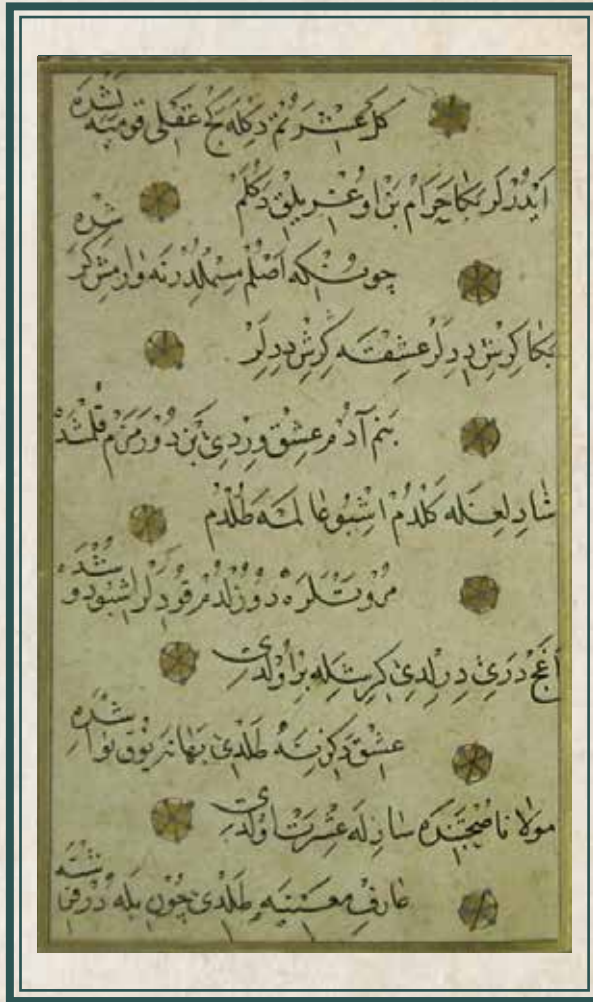 كل عشرتم دكله كج عقلى قوميه بشده
ايدرلر بكا حرام بن اوغريلق دكلم
چونكه اصلم سملدر نه وارمش كر شده
بكا كرش ديدلر عشقته كرش ديدلر
بنم آدم عشق وردى بن دورمزم قلمشده
شاديلغله كلدم اشبو عالمه طلدم
مروتلره دوزلدم قودلر اشبو دوشده
اغج درى درلدى كرشله بر اولدى
عشق دكزينه طلدى بهانه يوق بو اشده
مولانا صحبتنده سازله عشرت اولدى
عارف معنيه طلدى چون بله در فرشته